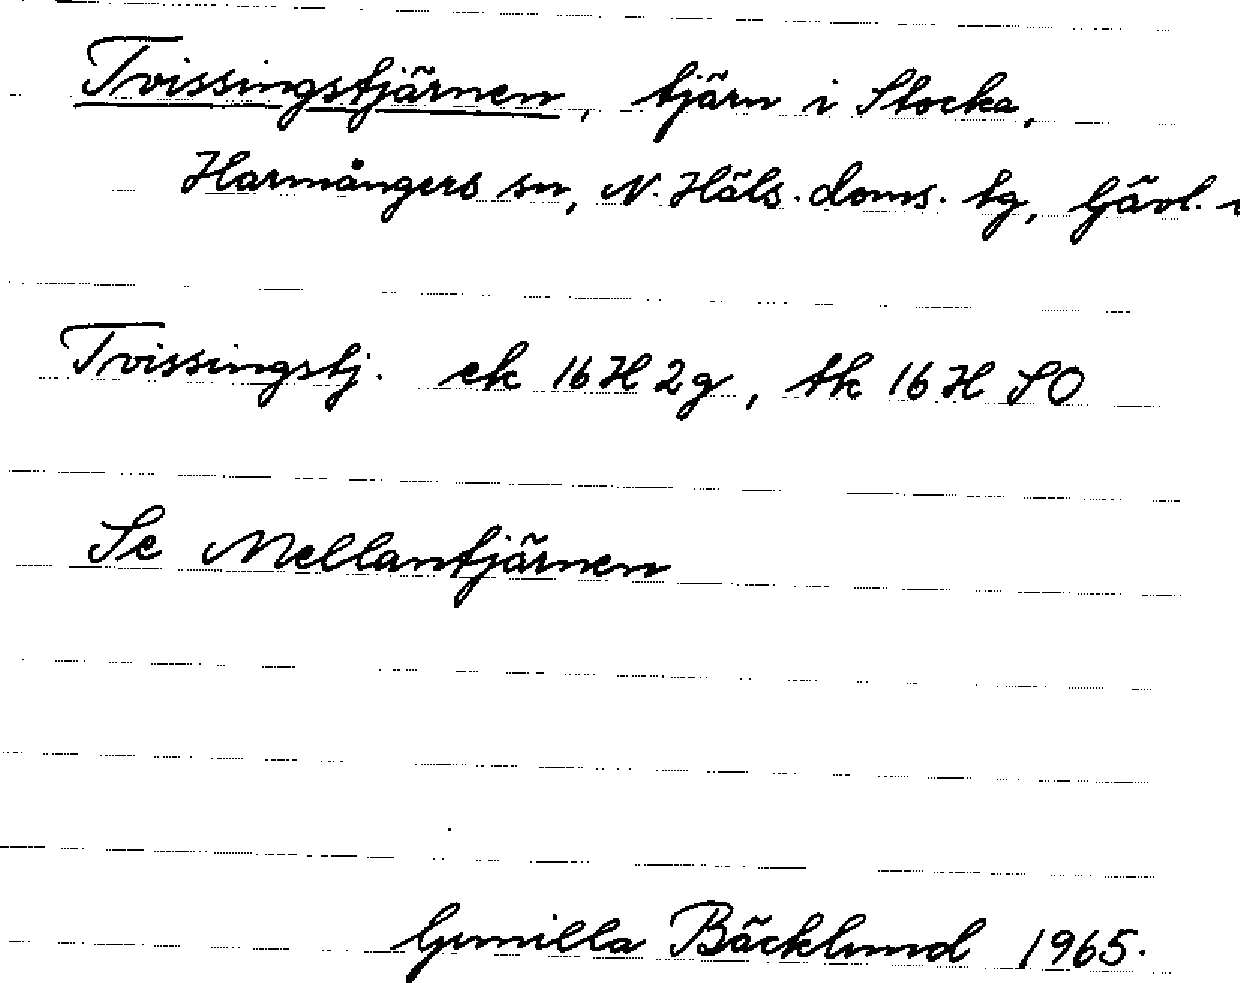 Tvissingstjärnen, tjärn i Stocka,
Harmångers sn, N. Häls. doms. tg, Gävl.
Tvissingstj. ek 16H 2g, tk 16H SO
Se Mellantjärnen
Gunilla Bäcklund 1965.